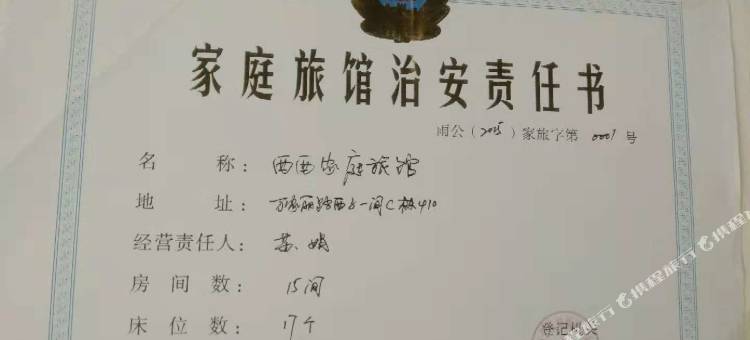 家庭旅馆治安责任书
雨公(2015)家旅字第 0007 号
名 称: 西西家庭旅馆
地 址: 万家丽路西子一间C栋410
经营责任人: 苏 娟
房 间 数: 15间
床 位 数: 17个
登记机关
携程旅行
携程旅行